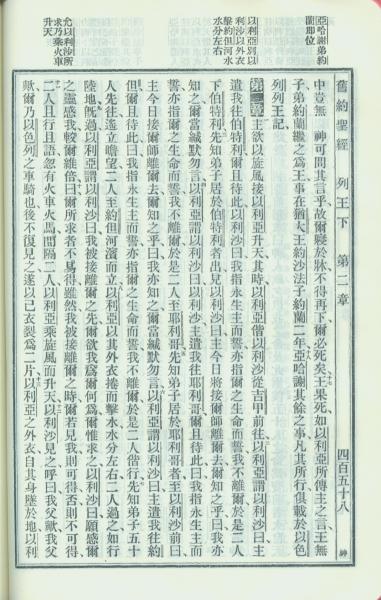 亞哈謝弟約
蘭即位
以利亞別以
利沙以外衣
擊約但河水
水分左右
允以利沙所
求乃乘火車
升天
舊約聖經 列王下 第二章
四百五十八
神
中豈無 神可問其言乎故爾臥於牀不得再下爾必死矣王果死如以利亞所傳主之言王無
子弟約蘭繼之爲王事在猶大王約沙法子約蘭二年亞哈謝其餘之事凡其所行俱載於以色
列列王記
第二章 主欲以旋風接以利亞升天其時以利亞偕以利沙從吉甲前往以利亞謂以利沙曰主
遣我往伯特利爾且待此以利沙曰我指永生主而誓亦指爾之生命而誓我不離爾於是二人
下伯特利先知弟子居於伯特利者出見以利沙曰主今日將接師離爾去爾知之乎曰我亦
知之爾當緘默勿言以利亞謂以利沙曰以利沙主遣我往耶利哥爾且待此曰我指永生主而
誓亦指爾之生命而誓我不離爾於是二人至耶利哥先知弟子居於耶利哥者至以利沙前曰
主今日接師離爾去爾知之乎曰我亦知之爾當緘默勿言以利亞謂以利沙曰主遣我往約
但爾且待此曰我指永生主而誓亦指爾之生命而誓我不離爾於是二人偕行先知弟子五十
人先往遙立瞻望二人至約但河濱而立以利亞以其外衣捲而擊水水分左右二人過之如行
陸地既過以利亞謂以利沙曰我被接離爾之先爾欲我爲爾何爲爾惟求之以利沙曰願感爾
之靈感我較爾維倍曰爾所求者不易得雖然我被接離爾之時爾若見我則可得否則不可得
二人且行且語忽有火車火馬間隔二人以利亞乘旋風而升天以利沙見之呼曰我父歟我父
歟爾乃以色列之車騎也後不復見之遂以己衣裂爲二片以利亞之外衣自其身墜於地以利